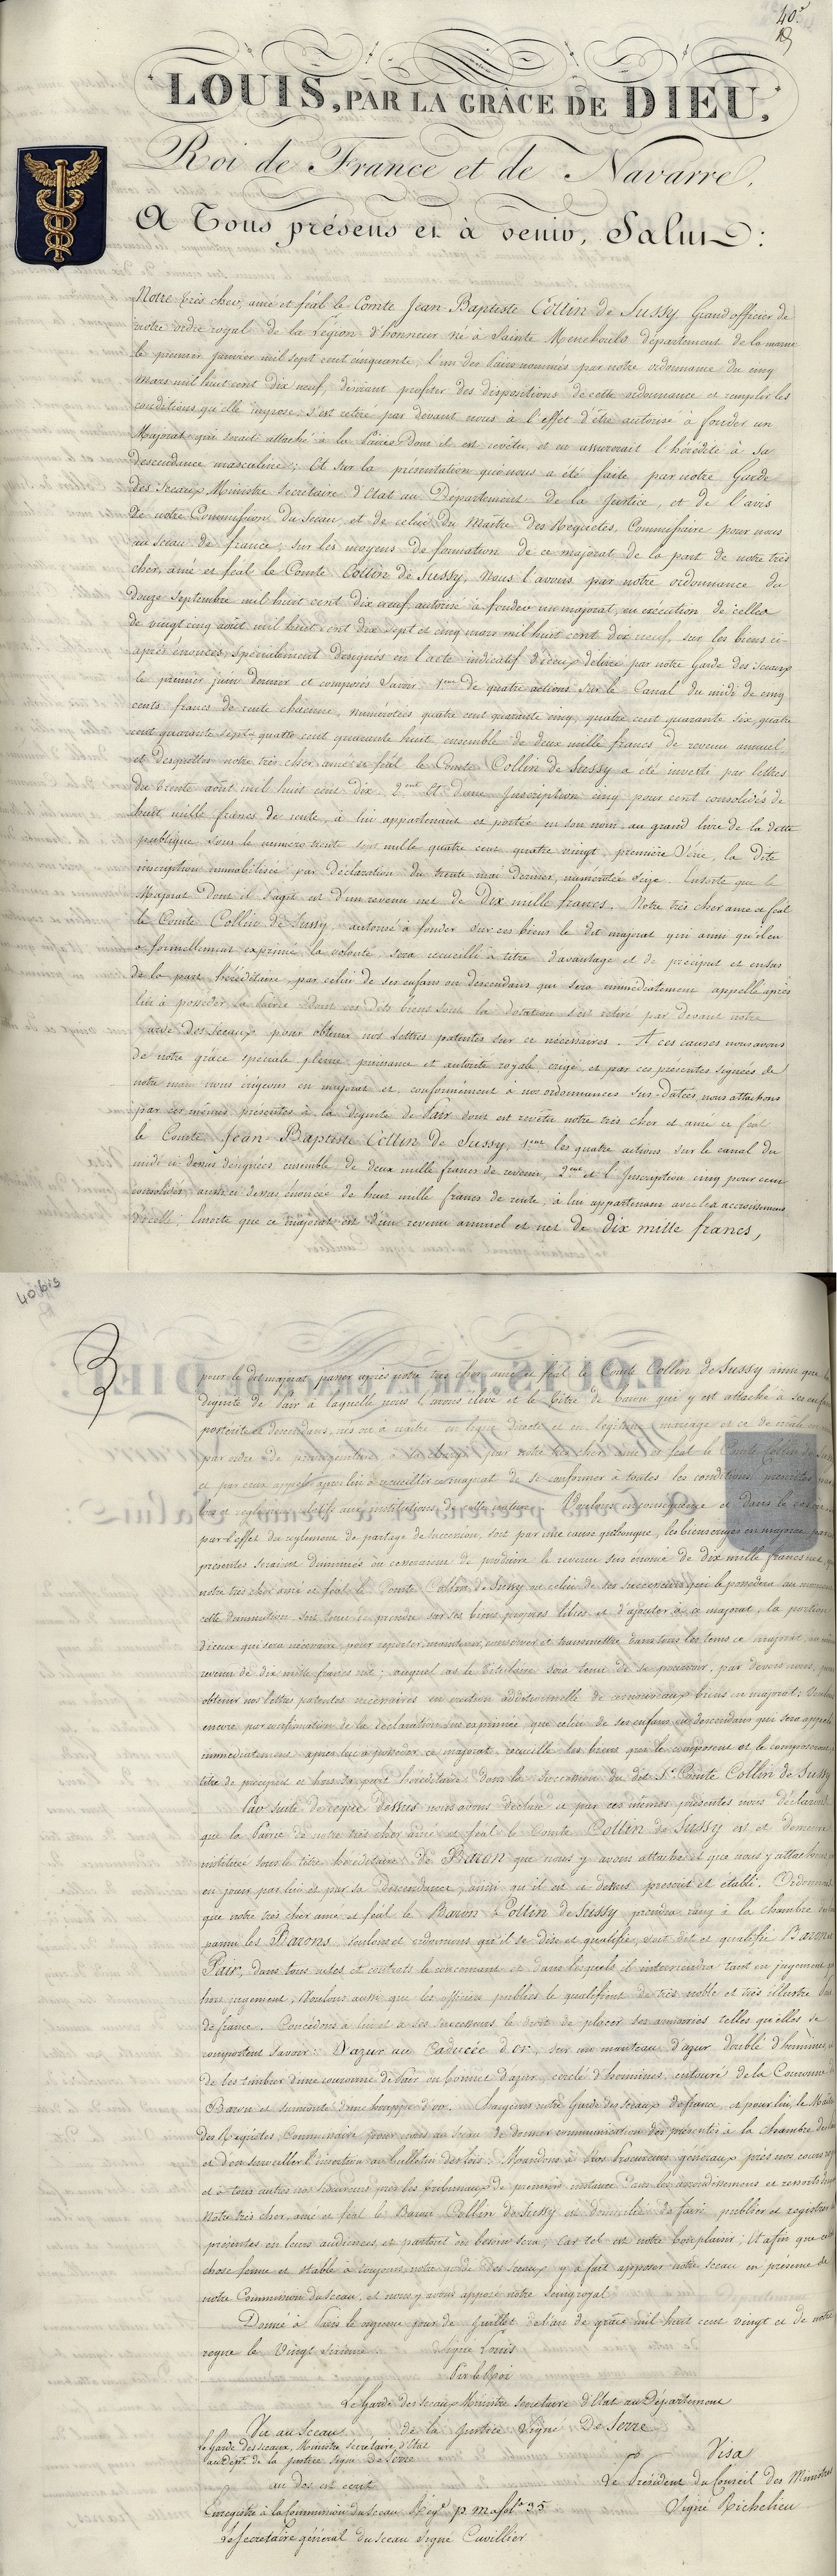 40.e
LOUIS, PAR LA GRÂCE DE DIEU,
Roi de France et de Navarre,
A Tous présens et à venir, Salut :
Notre très cher, amé et féal le Comte Jean Baptiste Collin de Sussy, Grand officier de
notre ordre royal de la Légion d'honneur né à Sainte Menehould département de la marne
le premier Janvier mil sept cent cinquante, l'un des Pairs nommés par notre ordonnance du cinq
mars mil huit cent dix neuf, désirant profiter des dispositions de cette ordonnance et remplir les
conditions qu'elle impose, s'est retiré par devant nous à l'effet d'être autorisé à fonder un
Majorat qui serait attaché à la Pairie dont il est revêtu, et en assurerait l'hérédité à sa
descendance masculine ; Et sur la présentation qui nous a été faite par notre Garde
des Sceaux Ministre Secrétaire d'Etat au Département de la Justice, et de l'avis
de notre Commission du Sceau, et de celui du Maître des Requêtes, Commissaire pour nous
au Sceau de france, sur les moyens de formation de ce majorat de la part de notre très
cher, amé et féal le Comte Collin de Sussy, Nous l'avons par notre ordonnance du
douze Septembre mil huit cent dix neuf, autorisé à fonder un majorat, en exécution de celles
de vingt cinq août mil huit cent dix sept et cinq mars mil huit cent dix neuf, sur les biens ci-
après énoncés, spécialement désignés en l'acte indicatif d'iceux délivré par notre Garde des Sceaux
le premier juin dernier et composés Savoir 1.ent de quatre actions sur le Canal du midi de cinq
cents francs de rente chacune, numérotées quatre cent quarante cinq, quatre cent quarante six, quatre
cent quarante sept, quatre cent quarante huit, ensemble de deux mille francs de revenu annuel,
et desquelles notre très cher amé et féal le Comte Collin de Sussy a été investi par lettres
du trente août mil huit cent dix. 2.ent Et d'une Inscription cinq pour cent consolidés de
huit mille francs de rente, à lui appartenant et portée en son nom, au grand livre de la dette
publique, sous le numéro trente sept mille quatre cent quatre vingt, première Série, la dite
inscription immobilisée par déclaration du trente mai dernier, numérotée Seize. Ensorte que le
Majorat dont il s'agit est d'un revenu net de Dix mille francs. Notre très cher amé et féal
le Comte Collin de Sussy, autorisé à fonder sur ces biens le dit majorat qui ainsi qu'il en
a formellement exprimé la volonté, sera recueilli à titre d'avantage et de préciput et ensus
de la part héréditaire, par celui de ses enfans ou descendans qui sera immédiatement appellé après
lui à posséder la Pairie dont ces dits biens sont la dotation s'est retiré par devant notre
Garde des Sceaux pour obtenir nos Lettres patentes sur ce nécessaires. A ces causes nous avons
de notre grâce spéciale pleine puissance et autorité royale, érigé et par ces présentes signées de
notre main nous érigeons en majorat et, conformément à nos ordonnances sus-datées, nous attachons
par ces mêmes présentes à la dignité de Pair dont est revêtu notre très cher et amé et féal
le Comte Jean Baptiste Collin de Sussy, 1.ent les quatre actions sur le canal du
midi ci dessus désignées ensemble de deux mille francs de revenu, 2.ent et l'Inscription cinq pour cent
consolidés aussi ci dessus énoncée de huit mille francs de rente, à lui appartenant avec les accroissemens
d'icelle, Ensorte que ce majorat est d'un revenu annuel et net de dix mille francs,
40 bis
pour le dit majorat passer après notre très cher, amé et féal le Comte Collin de Sussy ainsi que la
dignité de Pair à laquelle nous l'avons élevé et le titre de Baron qui y est attaché à ses enfans
postérité et descendans, nés ou à naître en ligne directe et en légitime mariage et ce de mâle en
par ordre de primogéniture à la charge par notre très cher amé et féal le Comte Collin de Sussy
et par ceux appelés après lui à recueillir ce majorat de se conformer à toutes les conditions prescrites par
lois et réglemens relatifs aux institutions de cette nature. Voulons en conséquence et dans le cas où
par l'effet du règlement de partage de succession, soit par une cause quelconque, les biens érigés en majorat par ces
présentes seraient diminués ou cesseraient de produire le revenu sus énoncé de dix mille francs net,
notre très cher amé et féal le Comte Collin de Sussy ou celui de ses successeurs qui le possédera au moment
cette diminution soit tenu de prendre sur ses biens propres libres et d'ajouter à ce majorat, la portion
d'iceux qui sera nécessaire, pour reporter, maintenir, conserver et transmettre dans tous les tems ce majorat, au même
revenu de dix mille francs net ; auquel cas le titulaire sera tenu de se pourvoir, par devers nous, pour
obtenir nos lettres patentes nécessaires en érection additionnelle de ces nouveaux biens en majorat ; Voulons
encore, par confirmation de la déclaration sus exprimée, que celui de ses enfans ou descendans qui sera appelé
immédiatement après lui à posséder ce majorat, recueille les biens qui le composent et le composeront à
titre de préciput et hors sa part héréditaire dans la succession du dit S.r Comte Collin de Sussy
Par suite de ce que dessus nous avons déclaré et par ces mêmes présentes nous déclarons
que la Pairie de notre très cher amé et féal le Comte Collin de Sussy est et demeure
instituée sous le titre héréditaire de Baron que nous y avons attaché et que nous y attachons
en jouir par lui et par sa descendance, ainsi qu'il est ci dessus prescrit et établi. Ordonnons
que notre très cher amé et féal le Baron Collin de Sussy prendra rang à la chambre des
parmi les Barons, voulons et ordonnons qu'il se dise et qualifie, soit dit et qualifié Baron et
Pair, dans tous actes et contrats le concernant et dans lesquels il interviendra tant en jugement que
hors jugement, Voulons aussi que les officiers publics le qualifient de très noble et très illustre Pair
de france. Concédons à lui et à ses successeurs le droit de placer ses armoiries telles qu'elles se
comportent savoir : D'azur au Caducée d'or, sur un manteau d'azur doublé d'hermines, et
de les timbrer d'une couronne de Pair ou bonnet d'azur, cerclé d'hermines, entouré de la Couronne de
Baron et surmonté d'une houppe d'or. Chargeons notre Garde des Sceaux de france, et pour lui, le Maître
des Requêtes, Commissaire pour nous au Sceau de donner communication des présentes à la chambre des Pairs
et d'en surveiller l'insertion au bulletin des lois. Mandons à Nos Procureurs généraux près nos cours
et à tous autres nos Procureurs près les tribunaux de première instance dans les arrondissemens et ressorts
Notre très cher, amé et féal le Baron Collin de Sussy est domicilié de faire publier et registrer les
présentes en leurs audiences et partout où besoin sera ; Car tel est notre bon plaisir ; Et afin que ce soit
chose ferme et stable à toujours notre garde des Sceaux y a fait apposer notre sceau en présence de
notre Commission du Sceau, et nous y avons apposé notre Seing royal
Donné à Paris le onzième jour de Juillet de l'an de grâce mil huit cent vingt et de notre
règne le Vingt Sixième. Signé Louis
Par le Roi
Le Garde des Sceaux Ministre Secrétaire d'Etat au Département
de la Justice Signé De Serre
Vu au Sceau
Le Garde des Sceaux, Ministre Secrétaire d'Etat
au Dépt. de la Justice Signé De Serre
Visa
Le Président du Conseil des Ministres
Signé Richelieu
au dos est écrit
Enregistré à la Commission du Sceau Reg.e p. ma fol.o 35
Le Secrétaire général du sceau signé Cuvillier